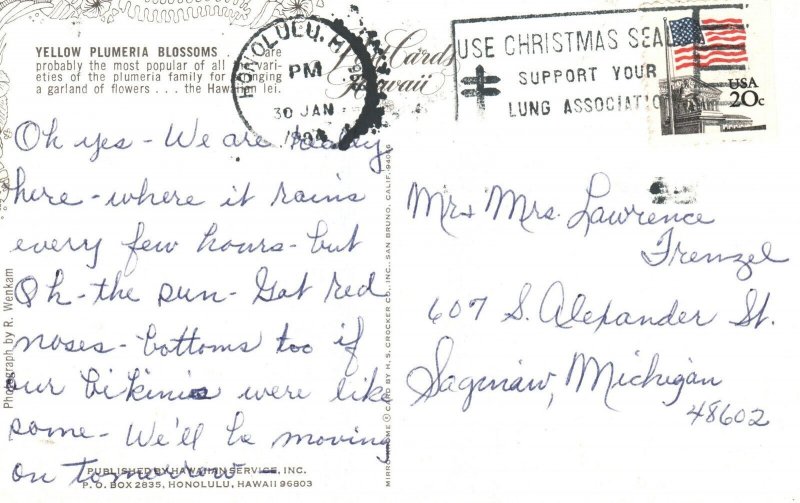 YELLOW PLUMERIA BLOSSOMS . . . are
probably the most popular of all the vari-
eties of the plumeria family for stringing
a garland of flowers . . . the Hawaiian lei.
Cards
Hawaii
HONOLULU, HI
PM
30 JAN
USE CHRISTMAS SEALS
SUPPORT YOUR
LUNG ASSOCIATION
USA
20c
Oh yes - We are really
here - where it rains
every few hours - but
Oh - the sun - Got red
noses - bottoms too if
our bikinis were like
some - We'll be moving
on tomorrow -
Mr & Mrs. Lawrence
Frenzel
607 S. Alexander St.
Saginaw, Michigan
48602
Photograph by R. Wenkam
MIRRO-KROME ® CARD BY H. S. CROCKER CO., INC., SAN BRUNO, CALIF. 94066
PUBLISHED BY HAWAIIAN SERVICE, INC.
P. O. BOX 2835, HONOLULU, HAWAII 96803